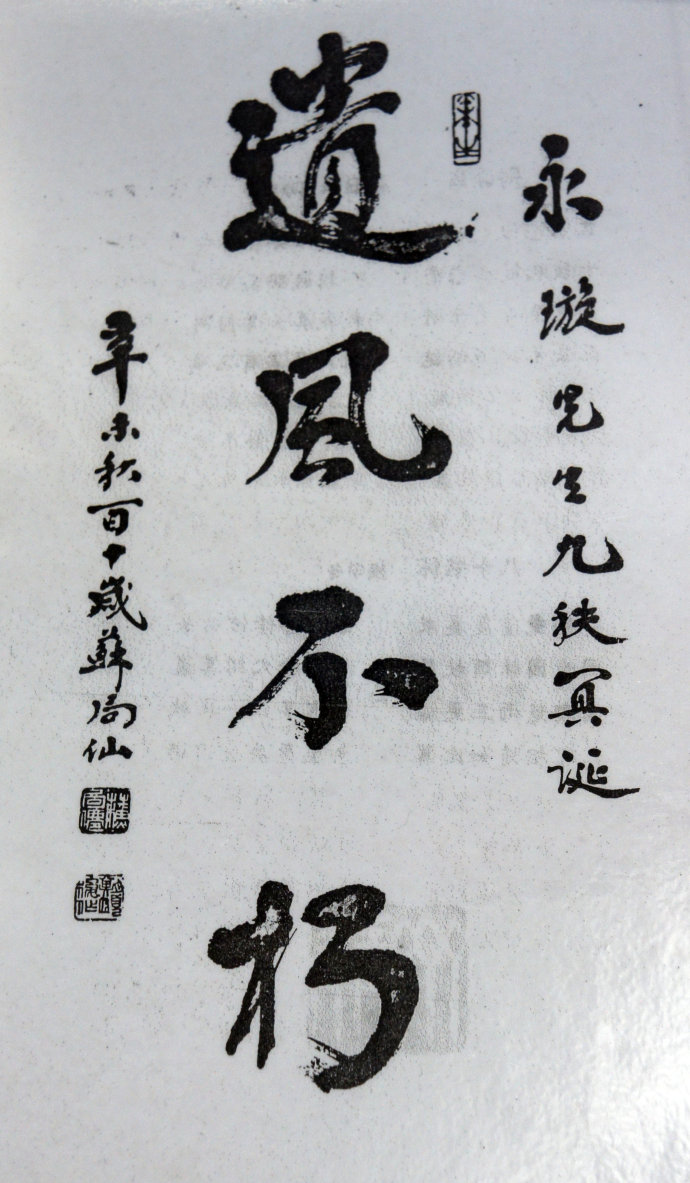 永璇先生九秩冥诞
遺風不朽
辛未秋百十歲蘇局仙